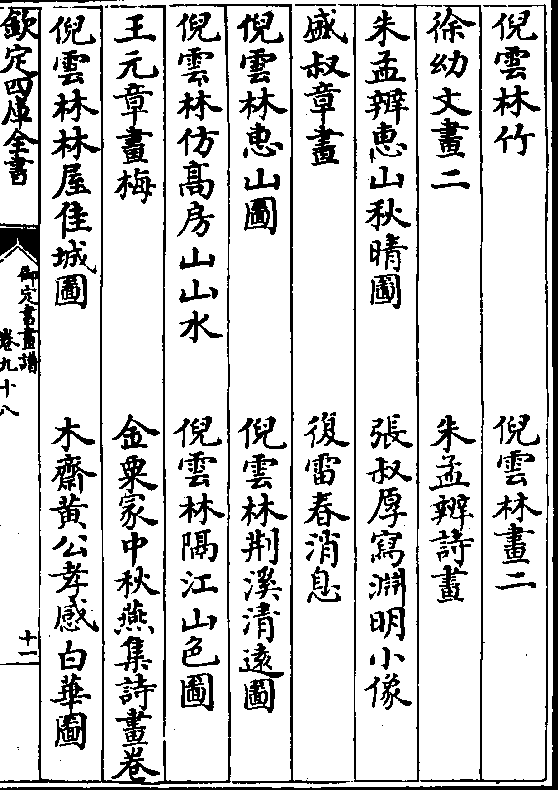 倪雲林竹　倪雲林畫二
徐幼文畫二　朱孟辨詩畫
朱孟辨惠山秋晴圖　張叔厚寫淵明小像
盛叔章畫　復雷春消息
倪雲林惠山圖　倪雲林荆溪清遠圖
倪雲林仿髙房山山水　倪雲林隔江山色圖
王元章畫梅　金粟冡中秋燕集詩畫卷
倪雲林林屋佳城圖　木齋黄公孝感白華圖
欽定四庫全書　御定書畫譜　卷九十八　十一